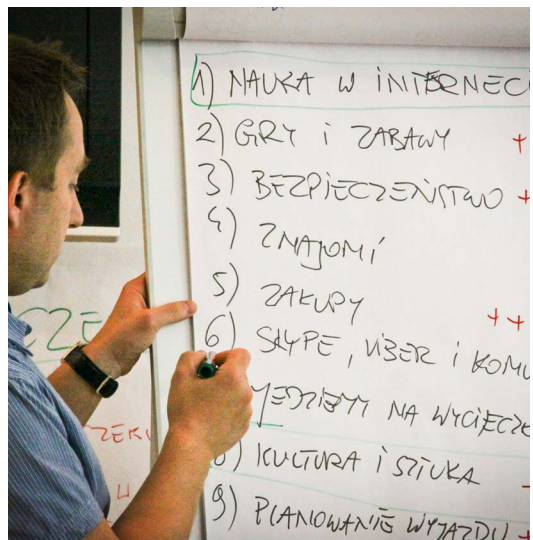 1) NAUKA W INTERNECI
2) GRY i ZABAWY +
3) BEZPIECZEŃSTWO +
4) ZNAJOMI
5) ZAKUPY ++
6) SKYPE, VIBER i KOMU
JEDZIEMY NA WYCIECZK
8) KULTURA i SZTUKA -
9) PLANOWANIE WYJAZDU +
CZE
ZEKU